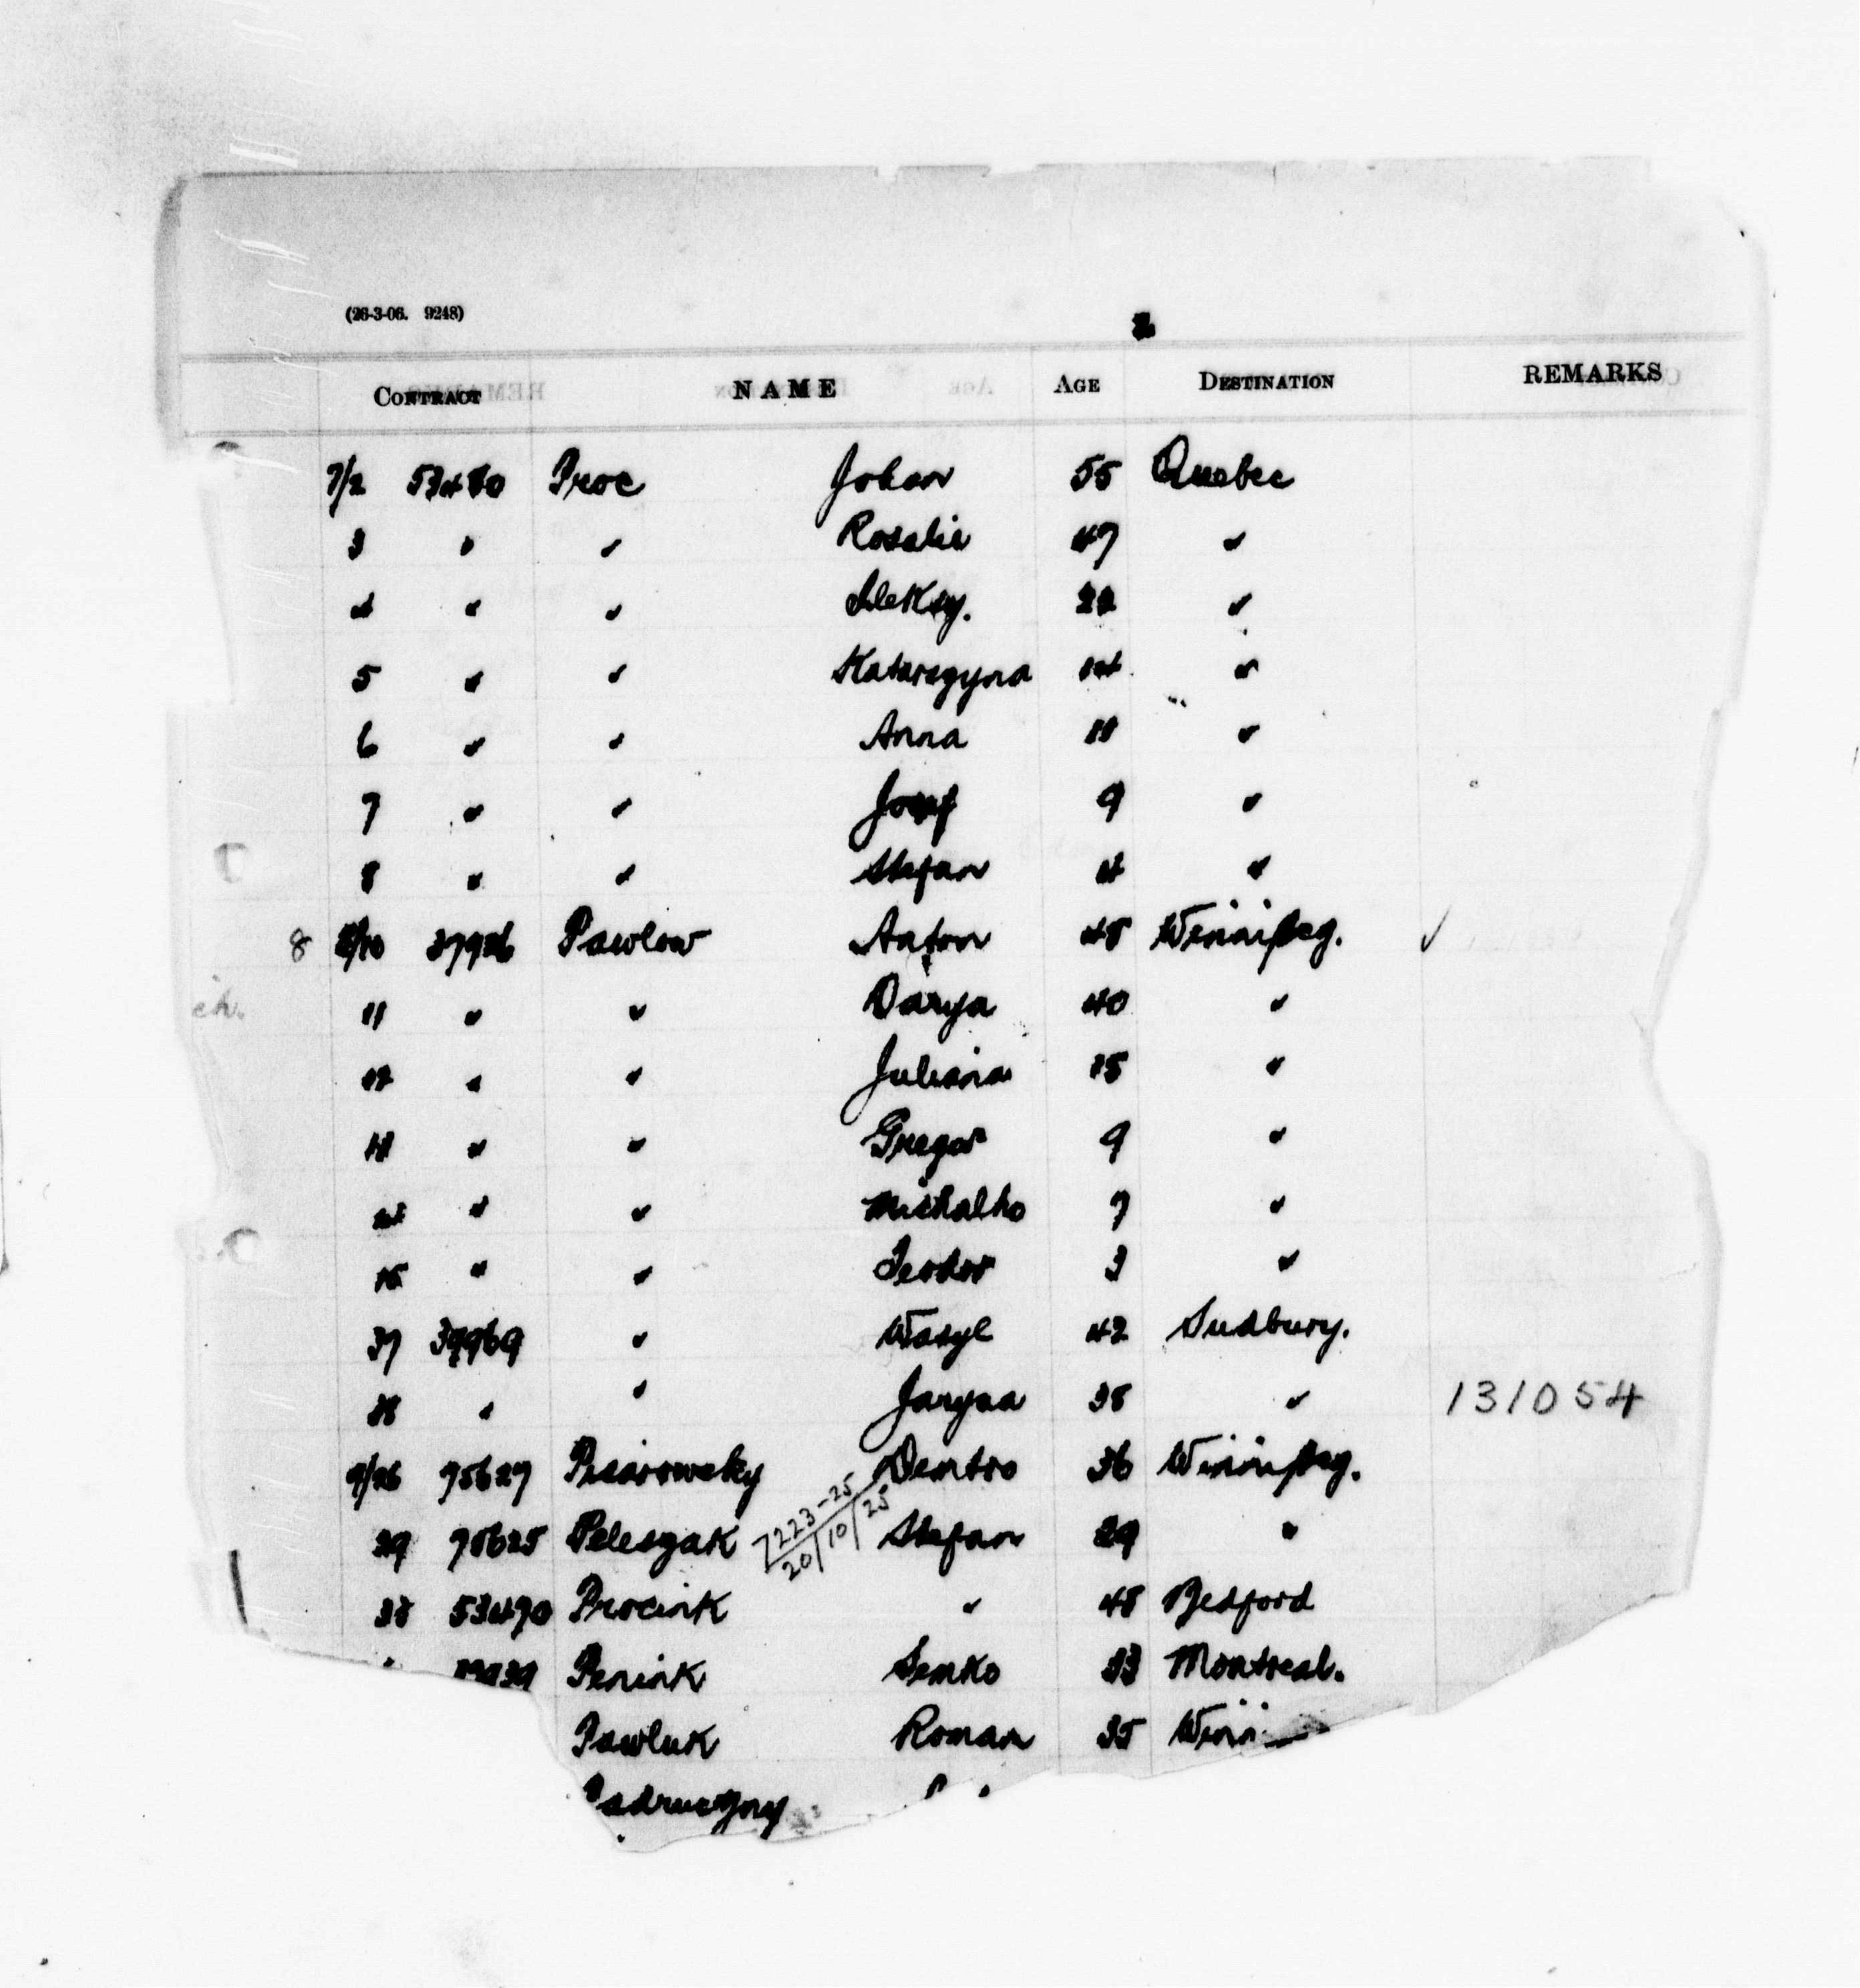 (26-3-06. 9248)
CONTRACT NAME AGE DESTINATION REMARKS
7/2 53480 Proc Johan 55 Quebec
3 " " Rosalie 47 "
4 " " Aleksy. 22 "
5 " " Katarzyna 14 "
6 " " Anna 11 "
7 " " Josef 9 "
8 " " Stefan 4 "
8 8/10 37926 Pawlow Anton 48 Winnipeg. ✓
11 " " Darya 40 "
12 " " Juliana 15 "
13 " " Gregor 9 "
14 " " Michalko 7 "
15 " " Teodor 3 "
37 39969 " Wasyl 42 Sudbury.
38 " " Jaryna 38 " 131054
9/26 95627 Dmitro 36 Winnipeg.
7223-25
20/10/25
29 95625 Peleszak Stefan 29 "
38 53490 Prociuk " 48 Bedford
Peniuk Senko 33 Montreal.
Pawluk Roman 35 Winni